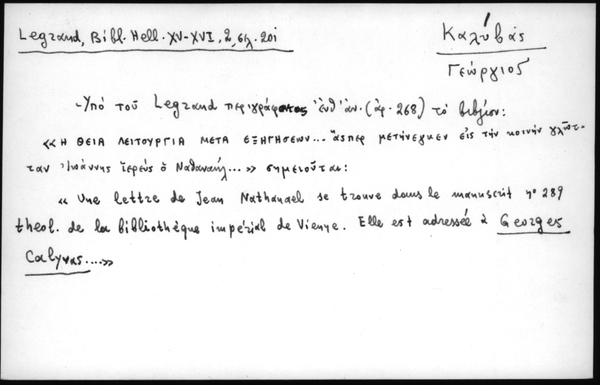 Legrand, Bibl. Hell. XV-XVI, 2, σελ. 201
Καλύβας
Γεώργιος
-Ὑπὸ τοῦ Legrand περιγράφοντος ἐνθ' ἀν. (ἀρ. 268) τὸ βιβλίον:
«Η ΘΕΙΑ ΛΕΙΤΟΥΡΓΙΑ ΜΕΤΑ ΕΞΗΓΗΣΕΩΝ... ἅσπερ μετήνεγκεν εἰς τὴν κοινὴν γλῶτ-
ταν Ἰωάννης ἱερεὺς ὁ Ναθαναήλ...» σημειοῦται:
« Une lettre de Jean Nathanael se trouve dans le manuscrit nº 289
theol. de la bibliothèque impérial de Vienne. Elle est adressée à Georges
Calyvas....»